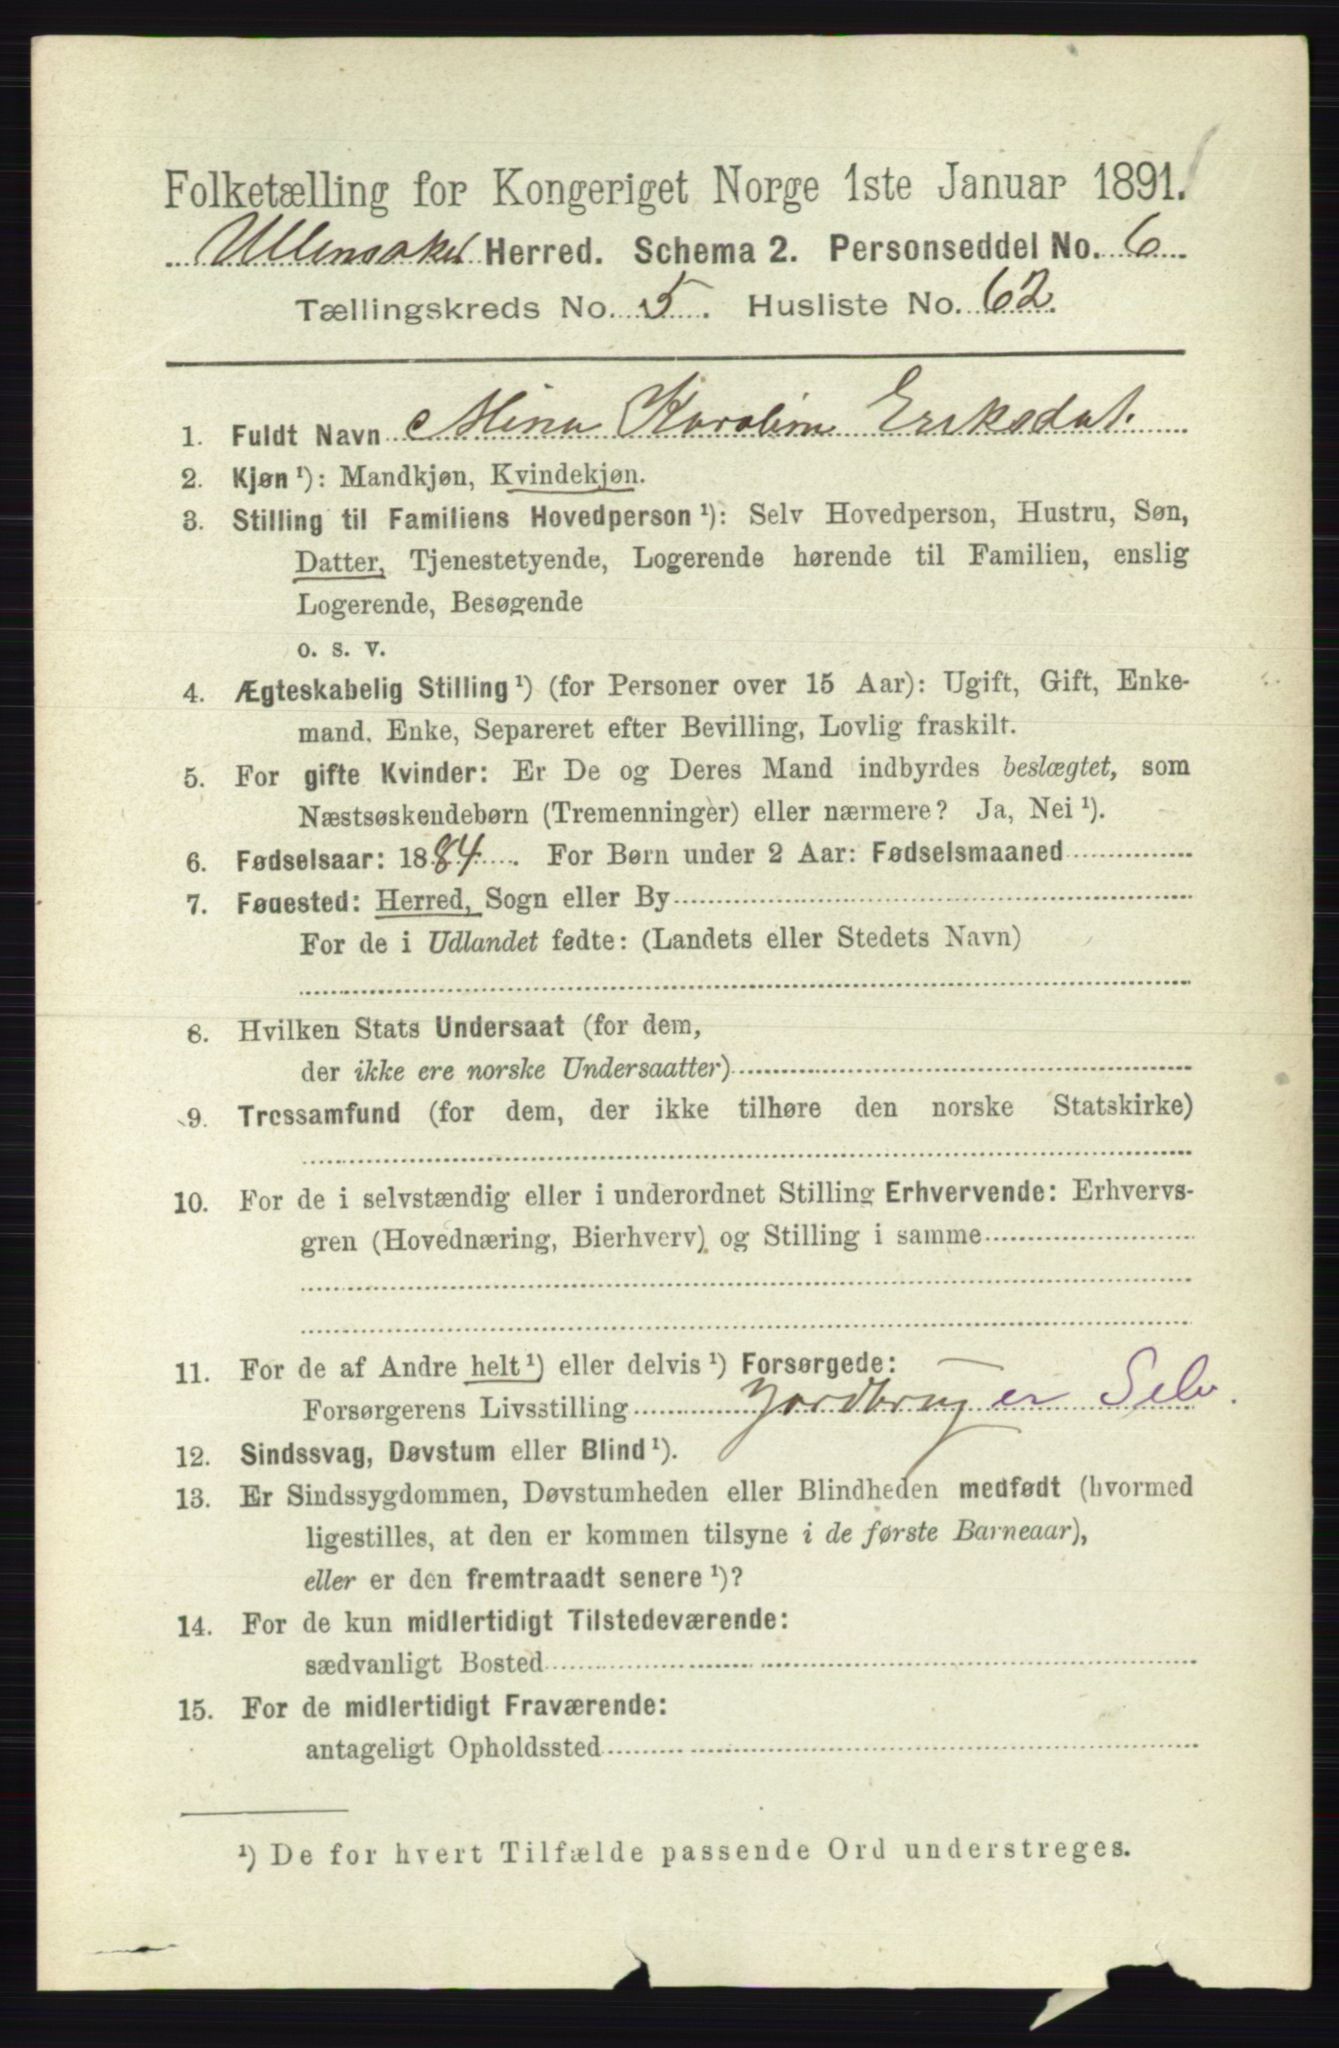 Folketælling for Kongeriget Norge 1ste Januar 1891.
Ullensaker Herred. Schema 2. Personseddel No. 6
Tællingskreds No. 5. Husliste No. 62.
1. Fuldt Navn Mina Karoline Eriksdat.
2. Kjøn ¹): Mandkjøn, Kvindekjøn.
3. Stilling til Familiens Hovedperson ¹): Selv Hovedperson, Hustru, Søn,
Datter, Tjenestetyende, Logerende hørende til Familien, enslig
Logerende, Besøgende
o. s. v.
4. Ægteskabelig Stilling ¹) (for Personer over 15 Aar): Ugift, Gift, Enke-
mand. Enke, Separeret efter Bevilling, Lovlig fraskilt.
5. For gifte Kvinder: Er De og Deres Mand indbyrdes beslægtet, som
Næstsøskendebørn (Tremenninger) eller nærmere? Ja, Nei ¹).
6. Fødselsaar: 1884. For Børn under 2 Aar: Fødselsmaaned
7. Føuested: Herred, Sogn eller By
For de i Udlandet fødte: (Landets eller Stedets Navn)
8. Hvilken Stats Undersaat (for dem,
der ikke ere norske Undersaatter)
9. Trossamfund (for dem, der ikke tilhøre den norske Statskirke)
10. For de i selvstændig eller i underordnet Stilling Erhvervende: Erhvervs-
gren (Hovednæring, Bierhverv) og Stilling i samme
11. For de af Andre helt ¹) eller delvis ¹) Forsørgede:
Forsørgerens Livsstilling Jordbruger Selv.
12. Sindssvag, Døvstum eller Blind ¹).
13. Er Sindssygdommen, Døvstumheden eller Blindheden medfødt (hvormed
ligestilles, at den er kommen tilsyne i de første Barneaar),
eller er den fremtraadt senere ¹)?
14. For de kun midlertidigt Tilstedeværende:
sædvanligt Bosted
15. For de midlertidigt Fraværende:
antageligt Opholdssted
¹) De for hvert Tilfælde passende Ord understreges.